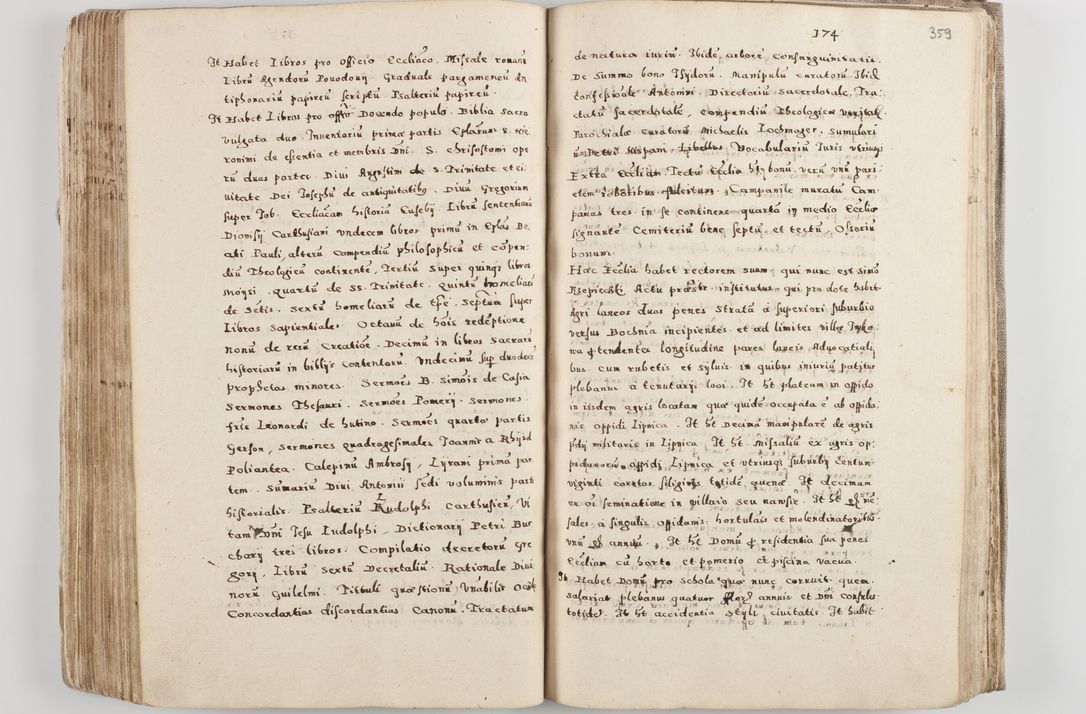 It Habet Libros pro officio Eccliaco. Missale romanū
Librū Agendorū Powodowij. Graduale pargameneū An
tiphonariū papireū scriptū Psalteriū papireū.
It Habet Libros pro offō Docendo populū. Biblia sacra
vulgata duo. Inventariū prima partis Eplarum S. Hie
ronimi de essentia et membris Dni. S. Chrisostomi ope
rū duas partes. Divi Augustini de S. Trinitate et ci:
uitate Dei Josephū de antiquitatibq. Divū Gregorium
super Job. Eccliacam historiā Eusebij. Librū sententiarū
Dionisij Carthusiani undecem libros primū in Eplas Be
ati Pauli, alterū compendiū philosophicū et cōpen:
diū Theologicū continente, Tertiū super quinqs libros
Moysi. quartū de SS. Trinitate. Quintū homeliarū
de Sctis. Sextū homeliarū de tpe. Septimū super
Libros sapientiales. Octavū de hois redēptione
nonū de rerū Creatiōe. Decimū in libros sacrarū
historiarū in biblijs contentarū. Undecimū sup duodeci
prophetas minores. Sermoēs B. Simois de Casia
Sermones Thesauri. Sermoēs Pomerij. Sermones
fris Leonardi de hutino. Sermoēs quarta partis
Gerson, Sermones quadragesimales Joannis a
Poliantea. Calepinū Ambrosij, Lyrani prima par
tem. Sumariū Divi Antonij sēdi voluminis part
historialis. Psalteriū Ludolphi Carthusien, Vi
tam Dni Jesu Ludolphi, Dictionarij Petri Bur
charij tres libros. Compilatio decretorū Gre
gorij. Librū Sextū Decretaliū. Rationale Divi
norū Guilelmi. Tituli quæstionū
Concordantias discordantias Canonū. Tractatum
174
359
de natura iuriū. Ibidē arborē Consanguinitatis.
De Summo bono Isydorū. Manipulū curatorū Ibid
Confessionale Antonini. Directoriū Sacerdotale, Tra:
ctatū sacerdotale, compendiū Theologica veritatis
Parochiale curatorū Michaelis Lochmajer. Sumulari
ū Petri Hispani. Libellus Vocabulariū Iuris utriusq
Extra Eccliam. Tectū Ecclia hs bonū, verū unū pari:
etem roboribus fulcitum. Campanile muratū Cam
panas tres in se continens quarta in medio Ecclia
signante Cemiteriū bene septū et tectū, Ossoriū
bonum.
Hac Ecclia habet rectorem suum, qui nunc est Simō
Rzepieczki. Actu prasbtr institutus, qui pro dote habit
Agri laneos duos penes Strata a superiori suburbio
versus Bochnia incipientes et ad limites villa
na ptendentes longitudine pares laneis Aduocatiali
bus cum rubetis et syluis in quibus iniuriū patitur
plebanus a tenutarijs loci. It ht plateam in oppido
in iisdem agris locatam qua quidē occupata ē ab oppida:
nis oppidi Lipnica. It ht Decimā manipularē de agris
pdij militaris in Lipnica. It ht missaliū ex agris op:
pidanorū oppidi Lipnica et utriusqs suburbij Centum
viginti coretos siliginis totidē quenæ. It decimam
ex oī seminatione in villario seu nawsie. It ht
sales. a singulis oppidanis hortulais et molendinatoribus
unū annuū, It ht Domū p residentia sua penes
Eccliam cū horto et pomerio et piscina vacua.
It Habet Domū pro schola qua nunc corruit quem
salariat plebanus quatuor flor annuis et Dni consules
totidē. It ht accidentia styli civitatis. It habit